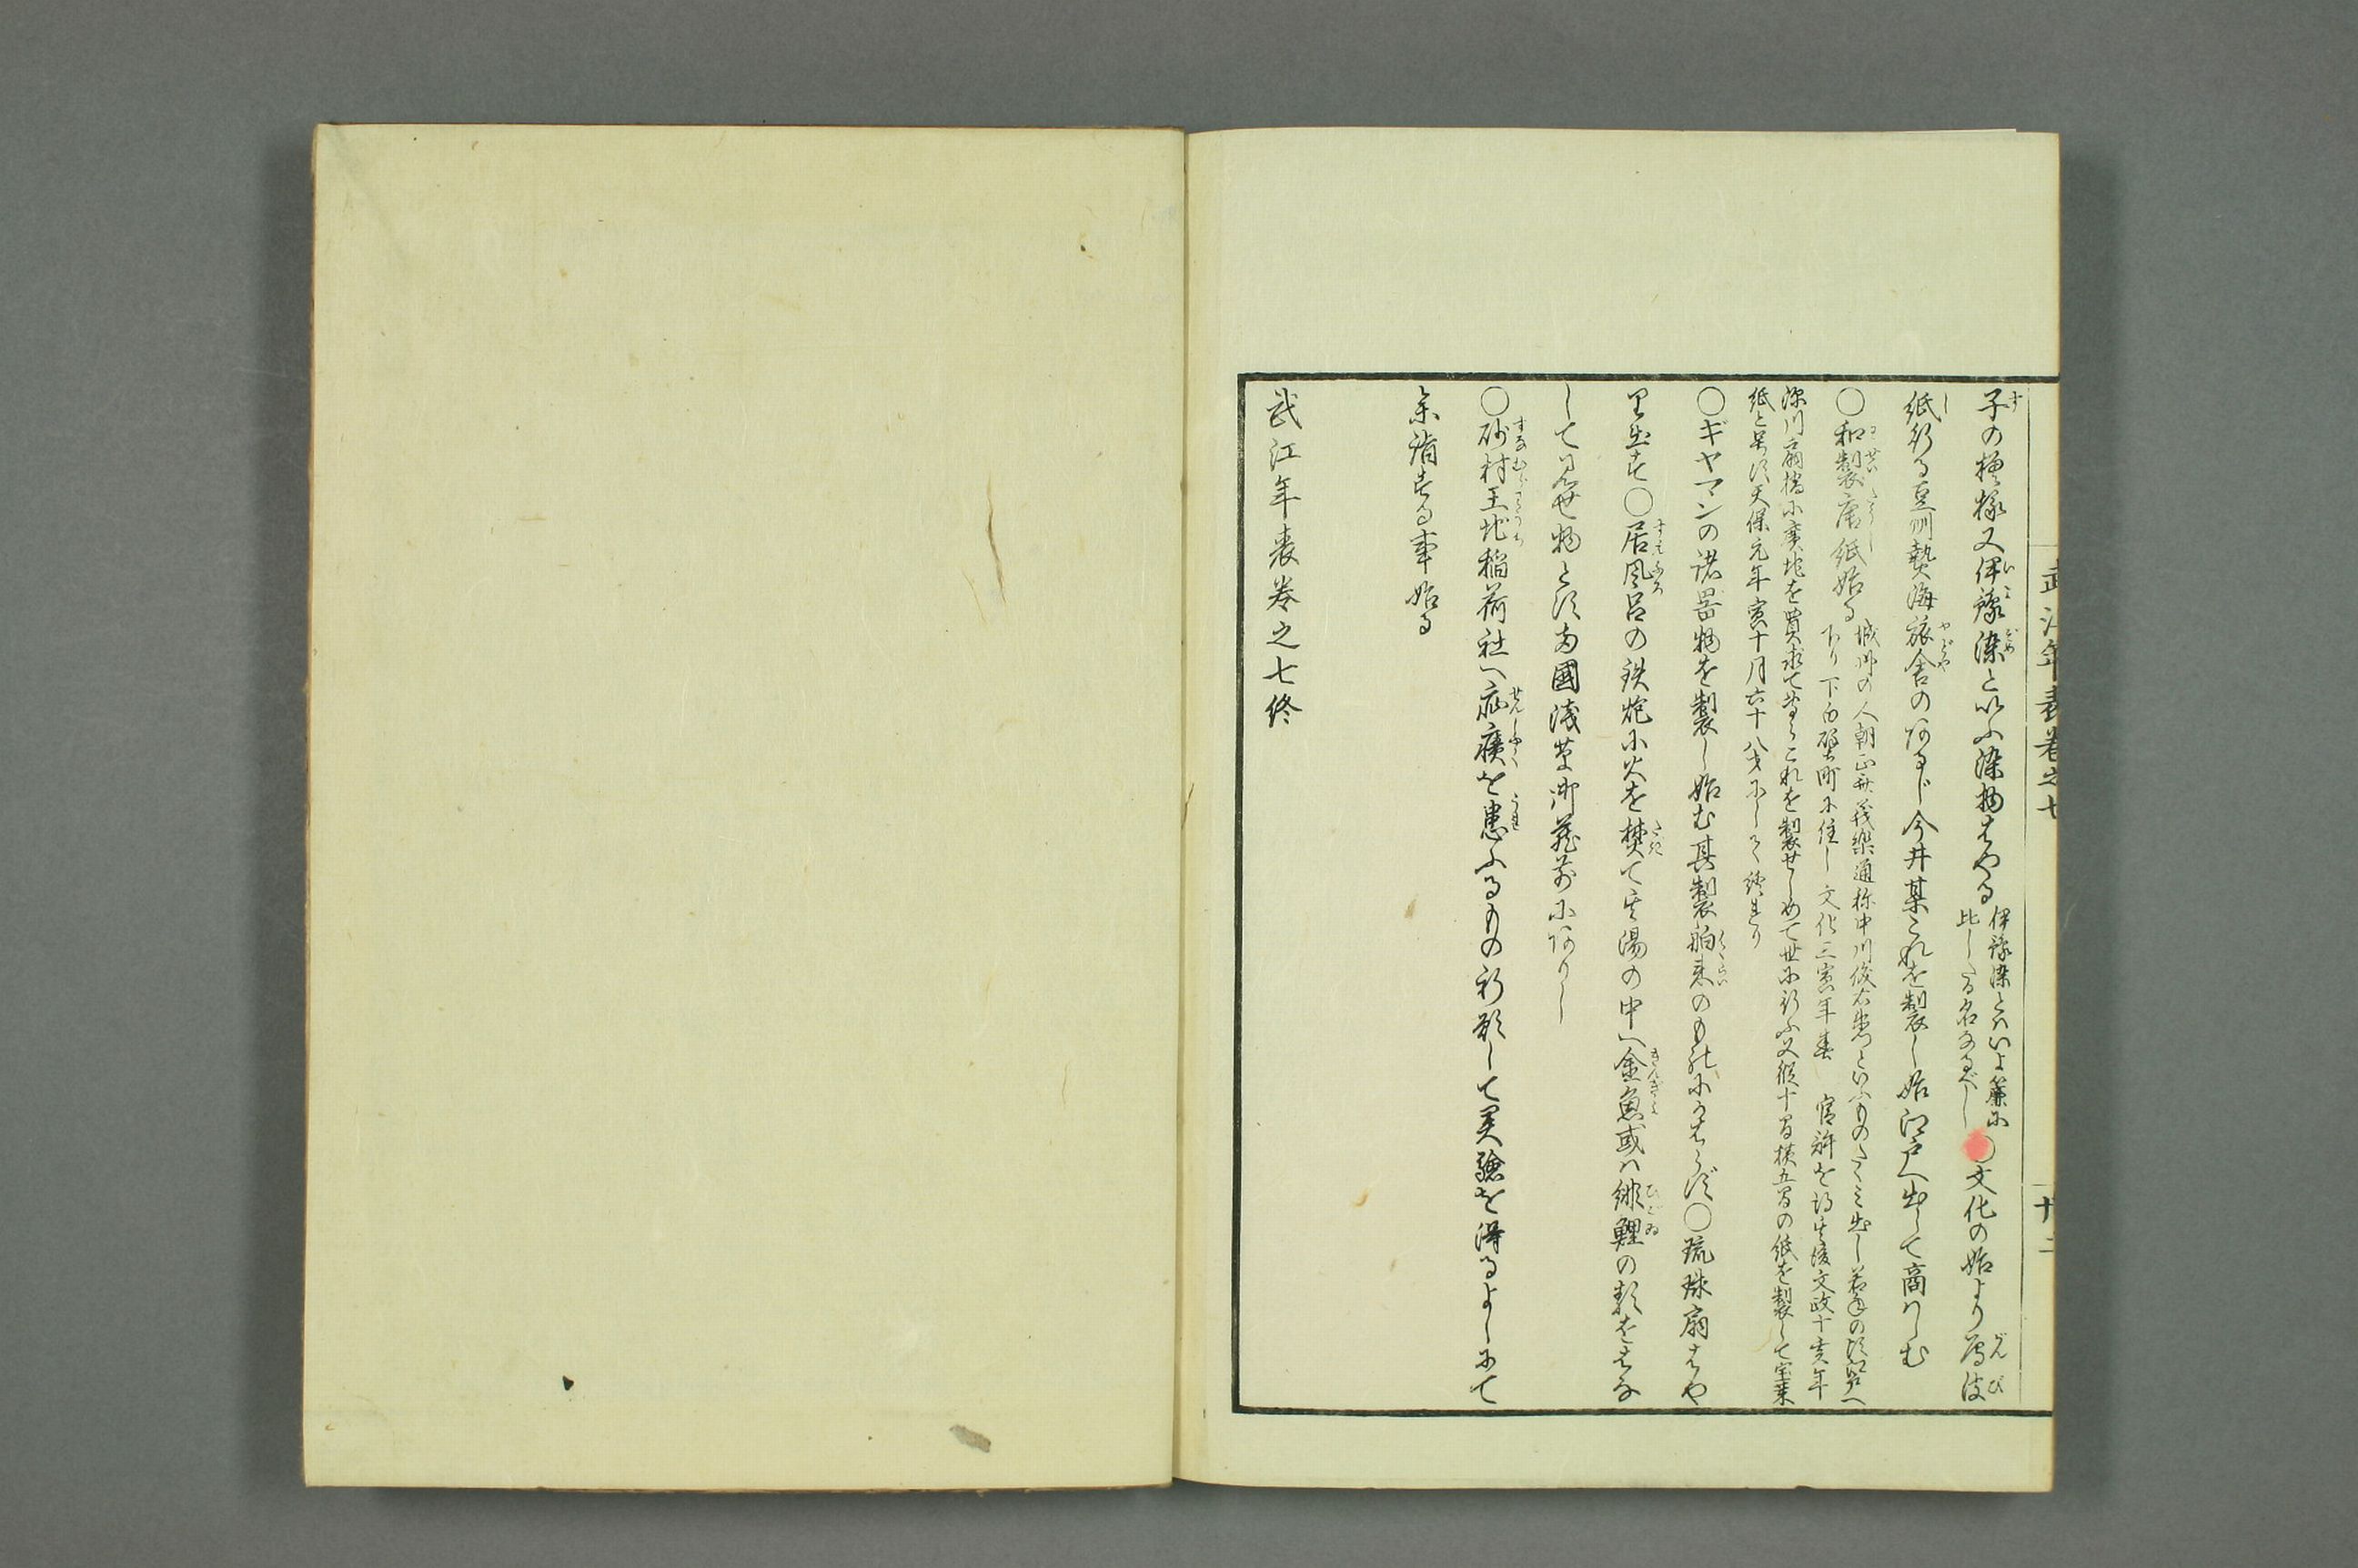 武江年表巻之七
十二
子の模様又伊豫染といふ染物はやる伊豫染とはいよ簾に比したる名なるべし○文化の始より雁皮
紙行る豆州熱海旅舎のあるじ今井某これを製し始江戸へ出して商はしむ
○和製唐紙始る
城州の人朝山丼茂樂通称中川儀右衛門といふものたくみ出し若年の頃江戸へ
下り下白壁町に住し文化三寅年春 官許を得其後文政十亥年
深川扇橋に廣地を買求て専らこれを製せしめて世に行ふ又縦十間横五間の紙を製して宝来
紙と号す天保元年寅十月六十八才にして終れり
○ギヤマンの諸器物を製し始む其製舶来のものにかはらず○琉球扇はや
り出す○居風呂の鉄炮に火を焚て其湯の中へ金魚或は緋鯉の類をはな
して見せ物とす両國浅草御蔵前にありし
○砂村王地稲荷社へ疝癪を患ふるもの祈願して霊驗を得るよしにて
参詣する事始る
武江年表巻之七終